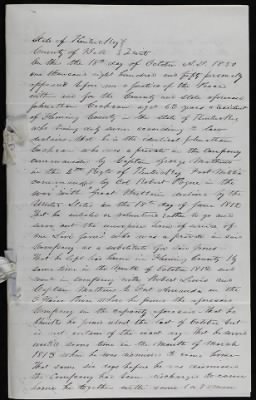 State of Kentucky }
County of Bath } Sct
On this 18th day of October A.D. 1850
one thousand eight hundred and fifty personally
appeared before me a Justice of the Peace
within and for the County and State aforesaid
Johnathan Cochran aged 60 years a resident
of Fleming County in the State of Kentucky
who being duly sworn according to law
declares that he is the identical Johnathan
Cochran who was a private in the Company
commanded by Captain George Matthews
in the 4th Regt of Kentucky Foot Militia
commanded by Col Robert Pogue in the
war with Great Britain declared by the
United States on the 18th day of June 1812
that he enlisted or volunteered rather to go and
serve out the unexpired term of service of
one Levi Jones who was a private in said
Company as a substitute for said Jones
that he left his home in Fleming County Ky
some time in the Month of October 1812 and
went in company with Robert and
Captain Matthews to Fort in the
where he joined the aforesaid
Company in the capacity aforesaid that he
thinks he joined about the last of October but
is not certain of the exact day that he served
until some time in the Month of March
1813 when he was dismissed to come home
that some six days before he was dismissed
the Company had been discharged to come
home he together with some